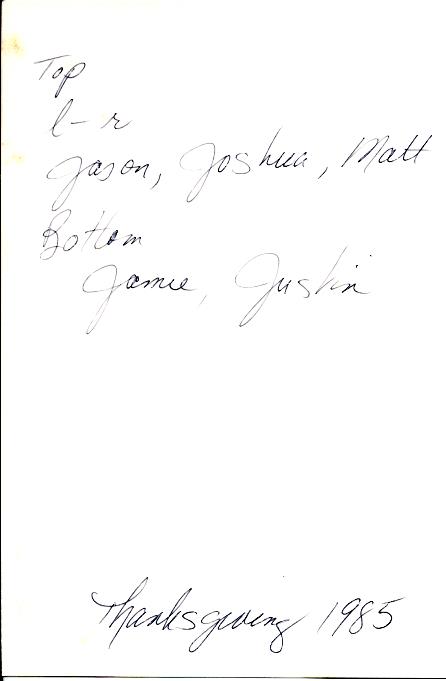 Top
l-r
Jason, Joshua, Matt
Bottom
Jamie, Justin
Thanksgiving 1985